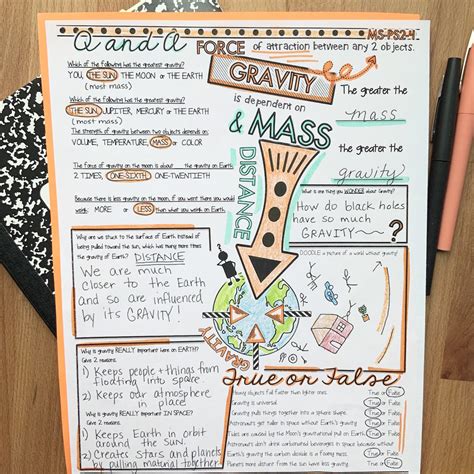 Q and A
MS-PS2-4
FORCE of attraction between any 2 objects.
Which of the following has the greatest gravity?
YOU, THE SUN, THE MOON or THE EARTH
(most mass)
Which of the following has the greatest gravity?
THE SUN, JUPITER, MERCURY or THE EARTH
(most mass)
The strength of gravity between two objects depends on:
VOLUME, TEMPERATURE, MASS or COLOR
The force of gravity on the moon is about the gravity on Earth.
2 TIMES, ONE-SIXTH, ONE-TWENTIETH
Because there is less gravity on the moon, if you went there you would
weigh MORE or LESS than what you weigh on Earth.
GRAVITY
is dependent on
& MASS
DISTANCE
The greater the
mass
the greater the
gravity
What is one thing you WONDER about Gravity?
How do black holes
have so much
GRAVITY
?
Why are we stuck to the surface of Earth instead of
being pulled toward the sun, which has many times
the gravity of Earth? DISTANCE
We are much
closer to the Earth
and so are influenced
by its GRAVITY!
DOODLE a picture of a world without gravity!
GRAVITY
Why is gravity REALLY important here on EARTH?
Give 2 reasons.
1) Keeps people + things from
floating into space
2) Keeps our atmosphere
in place
Why is gravity REALLY important IN SPACE?
Give 2 reasons.
1) Keeps Earth in orbit
around the sun.
2) Creates stars and planets
by pulling material together
True or False
Heavy objects fall faster than lighter ones. True or False
Gravity is universal. True or False
Gravity pulls things together into a sphere shape. True or False
Astronauts get taller in space without Earth's gravity. True or False
Tides are caused by the Moon's gravitational pull on Earth. True or False
Astronauts don't drink carbonated beverages in space because without True or False
Planets more distant from the sun feel less gravity. True or False